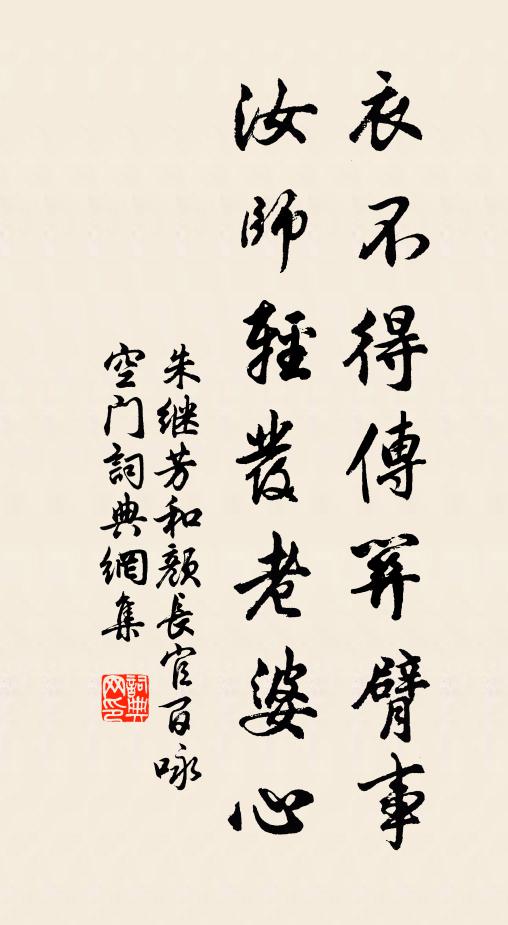 衣不得傳笄臂事
汝師輕發老婆心
朱继芳和顏長官百咏
空门詞典網集
詞典
网印